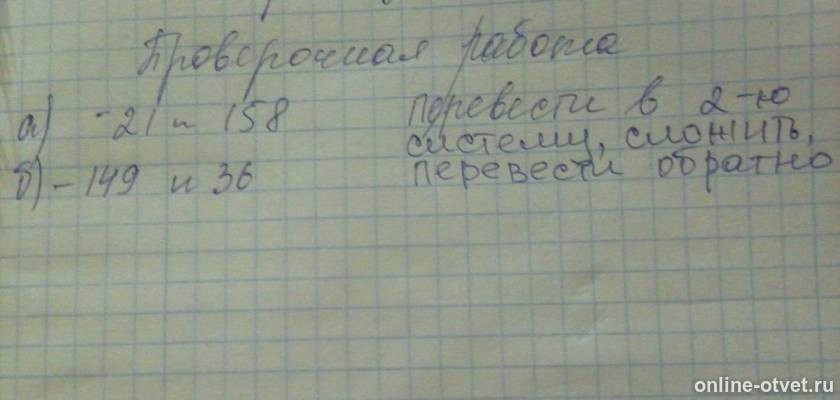 Проверочная работа
а) -21 и 158
б) -149 и 36
перевести в 2-ю
систему, сложить,
перевести обратно
online-otvet.ru